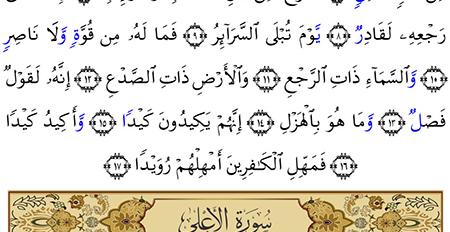 رَجْعِهِۦ لَقَادِرٌ ﴿٨﴾ يَوْمَ تُبْلَى ٱلسَّرَآئِرُ ﴿٩﴾ فَمَا لَهُۥ مِن قُوَّةٍ وَلَا نَاصِرٍ
﴿١٠﴾ وَٱلسَّمَآءِ ذَاتِ ٱلرَّجْعِ ﴿١١﴾ وَٱلْأَرْضِ ذَاتِ ٱلصَّدْعِ ﴿١٢﴾ إِنَّهُۥ لَقَوْلٌ
فَصْلٌ ﴿١٣﴾ وَمَا هُوَ بِٱلْهَزْلِ ﴿١٤﴾ إِنَّهُمْ يَكِيدُونَ كَيْدًا ﴿١٥﴾ وَأَكِيدُ كَيْدًا
﴿١٦﴾ فَمَهِّلِ ٱلْكَٰفِرِينَ أَمْهِلْهُمْ رُوَيْدًۢا ﴿١٧﴾
سُورَةُ ٱلْأَعْلَى